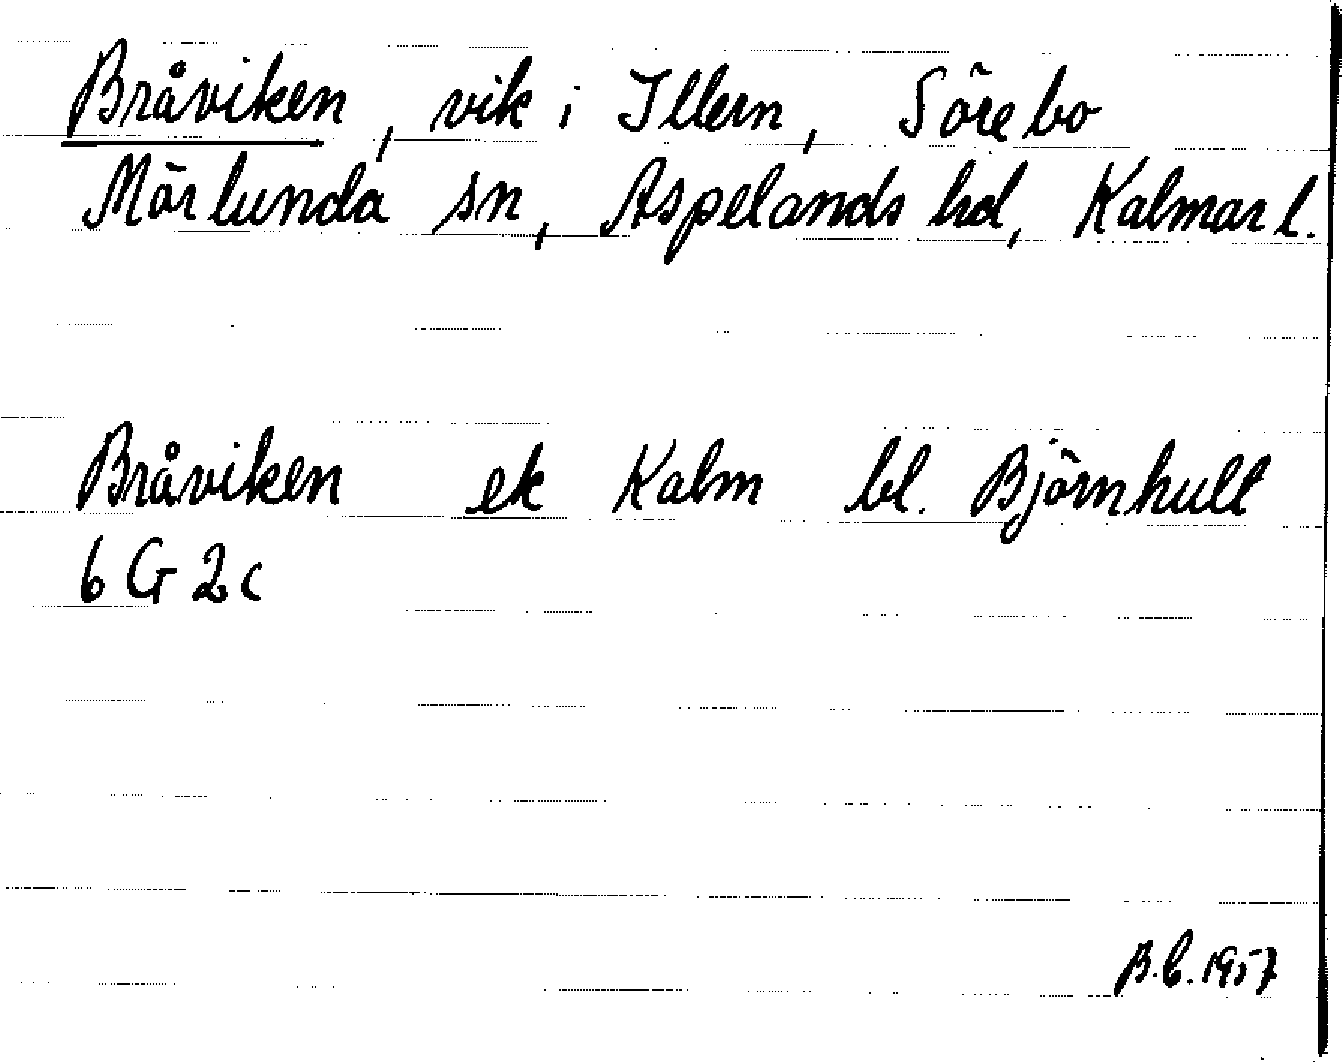 Bråviken, vik i Illern, Sörebo
Mörlunda sn, Aspelands hd, Kalmar l.
Bråviken ek Kalm bl. Björnhult
6 G 2 c
B.b. 1957